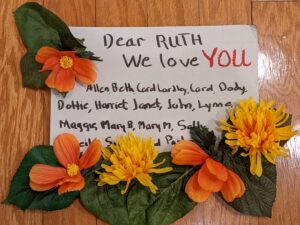 Dear RUTH
We love YOU
Allen Beth Carol Carol, Dody,
Dottie, Harriet Janet, John, Lynne,
Maggie, Mary B, Mary M, Sally